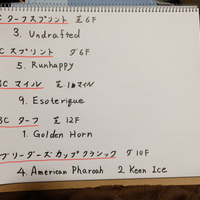 C ターフスプリント 芝6F
3. Undrafted
C スプリント ダ6F
5. Runhappy
BC マイル 芝1マイル
9. Esoterique
BC ターフ 芝12F
1. Golden Horn
ブリーダーズカップクラシック ダ10F
4. American Pharoah 2 Keen Ice